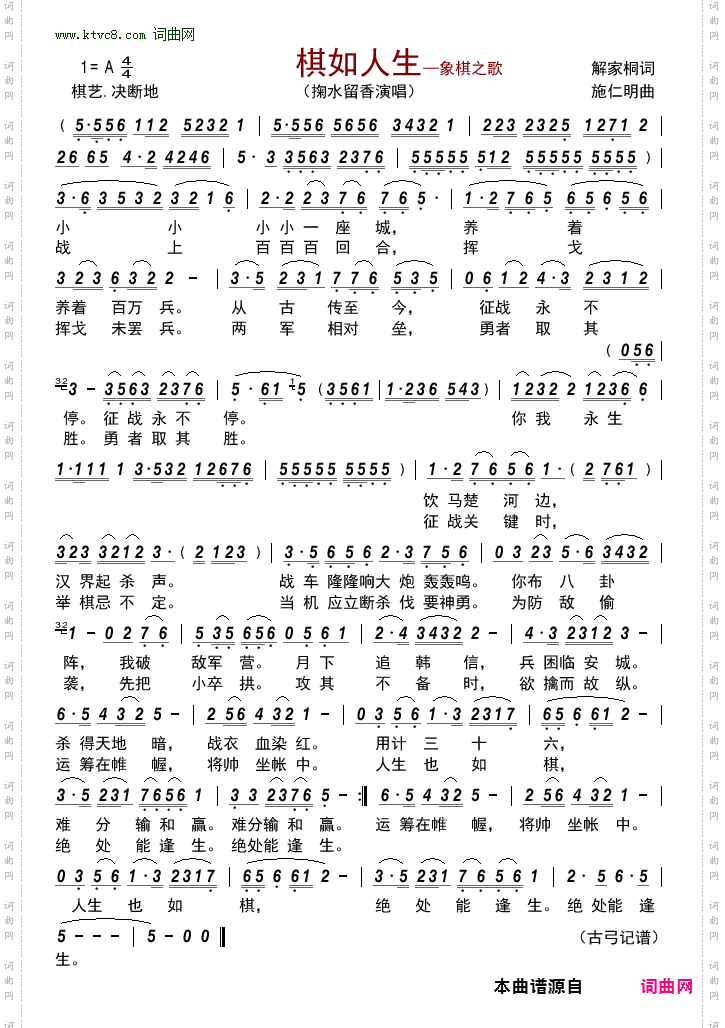 www.ktvc8.com 词曲网
1= A 4/4 棋如人生—象棋之歌 解家桐词
棋艺.决断地 （掬水留香演唱） 施仁明曲
( 5·556 112 5232 1 | 5·556 5656 3432 1 | 223 2325 1271 2 |
26 65 4·2 4246 | 5· 3 3563 2376 | 55555 512 55555 5555 ) |
3·6 3532 321 6 | 2·2 23 76 765· | 1·2 765 65 65 6 |
小 小 小小一座城， 养 着
战 上 百百百回合， 挥 戈
3 23 6 32 2 - | 3·5 231 776 535 | 06 12 4·3 2312 |
养着 百万 兵。 从 古 传至 今， 征战 永 不
挥戈 未罢 兵。 两 军 相对 垒， 勇者 取 其
( 056 |
32 3 - 3563 2376 | 5 · 61 1 5 (3561 | 1·236 543 ) | 1232 2 1236 6 |
停。征战永不 停。 你我 永生
胜。勇者取其 胜。
1·111 1 3·532 12676 | 55555 5555 ) | 1·2 76 56 1·( 2 761 ) |
饮马楚 河 边，
征战关 键 时，
323 3212 3·( 2 123 ) | 3·5 656 2·3 756 | 03 23 5·6 3432 |
汉界起杀 声。 战车隆隆响大炮轰轰鸣。 你布八卦
举棋忌不 定。 当机应立断杀伐要神勇。 为防敌偷
32 1 - 02 76 | 5 35 656 05 61 | 2·4 3432 2 - | 4·3 2312 3 - |
阵， 我破 敌军 营。 月下 追 韩 信， 兵困临安 城。
袭， 先把 小卒 拱。 攻其 不 备 时， 欲擒而故 纵。
6·5 4 32 5 - | 2 56 4 32 1 - | 03 56 1·3 2317 | 65 6 61 2 - |
杀得天地 暗， 战衣 血染 红。 用计 三 十 六，
运筹在帷 幄， 将帅 坐帐 中。 人生 也 如 棋，
3·5 231 7656 1 | 3 3 2376 5 - :‖ 6·5 4 32 5 - | 2 56 4 32 1 - |
难 分 输 和 赢。难分输 和 赢。 运筹在帷 幄， 将帅 坐帐 中。
绝 处 能 逢 生。绝处能 逢 生。
03 56 1·3 2317 | 65 6 61 2 - | 3·5 231 7656 1 | 2· 5 6·5 |
人生 也 如 棋， 绝 处 能 逢 生。绝 处能 逢
5 - - - | 5 - 0 0 ‖ （古弓记谱）
生。
本曲谱源自 词曲网